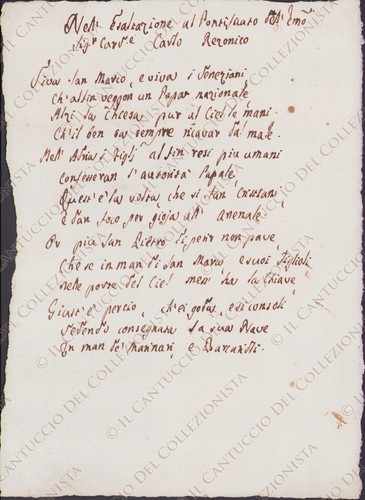 Nell' Esaltazione al Pontificato dell' Emo
Sigr Card.e Carlo Rezonico
Viva San Marco, e viva i Veneziani
Ch' alfin veggon un Papa nazionale
Alzi la Chiesa pur al Ciel le mani
Ch' il ben sa sempre ricavar dal male.
Nell' Adria i figli alfin resi più umani
conserveran l' autorità Papale
Quest' è la volta, che si fan Cristiani
e dan foco per gioja all' Arsenale.
Or più San Pietro di perir non pave
Che se in man di San Marco, e suoi figlioli
nelle porte del Ciel mess' ha la Chiave
Giust' è perciò, ch' ei goda, e si consoli
vedendo consegnata la sua Nave
In man de' marinari, e Barcaroli.
© Il Cantuccio Del Collezionista